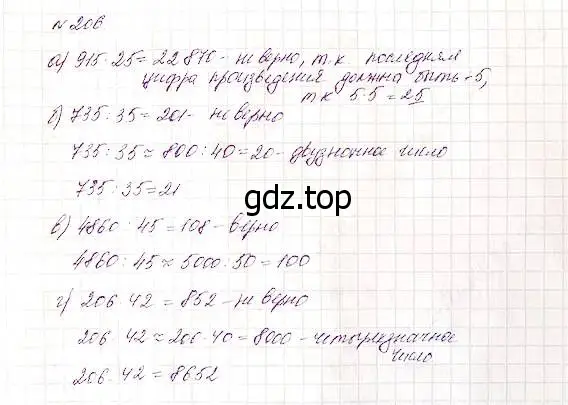 № 206
а) 915·25 = 22 870 - не верно, т.к последняя
цифра произведения должна быть - 5,
т к 5·5 = 25
б) 735 : 35 = 201 - не верно
735 : 35 ≈ 800 : 40 = 20 - двузначное число
735 : 35 = 21
gdz.top
в) 4860 : 45 = 108 - верно
4860 : 45 ≈ 5000 : 50 = 100
г) 206·42 = 852 - не верно
206·42 ≈ 200·40 = 8000 - четырёхзначное
число
206·42 = 8652